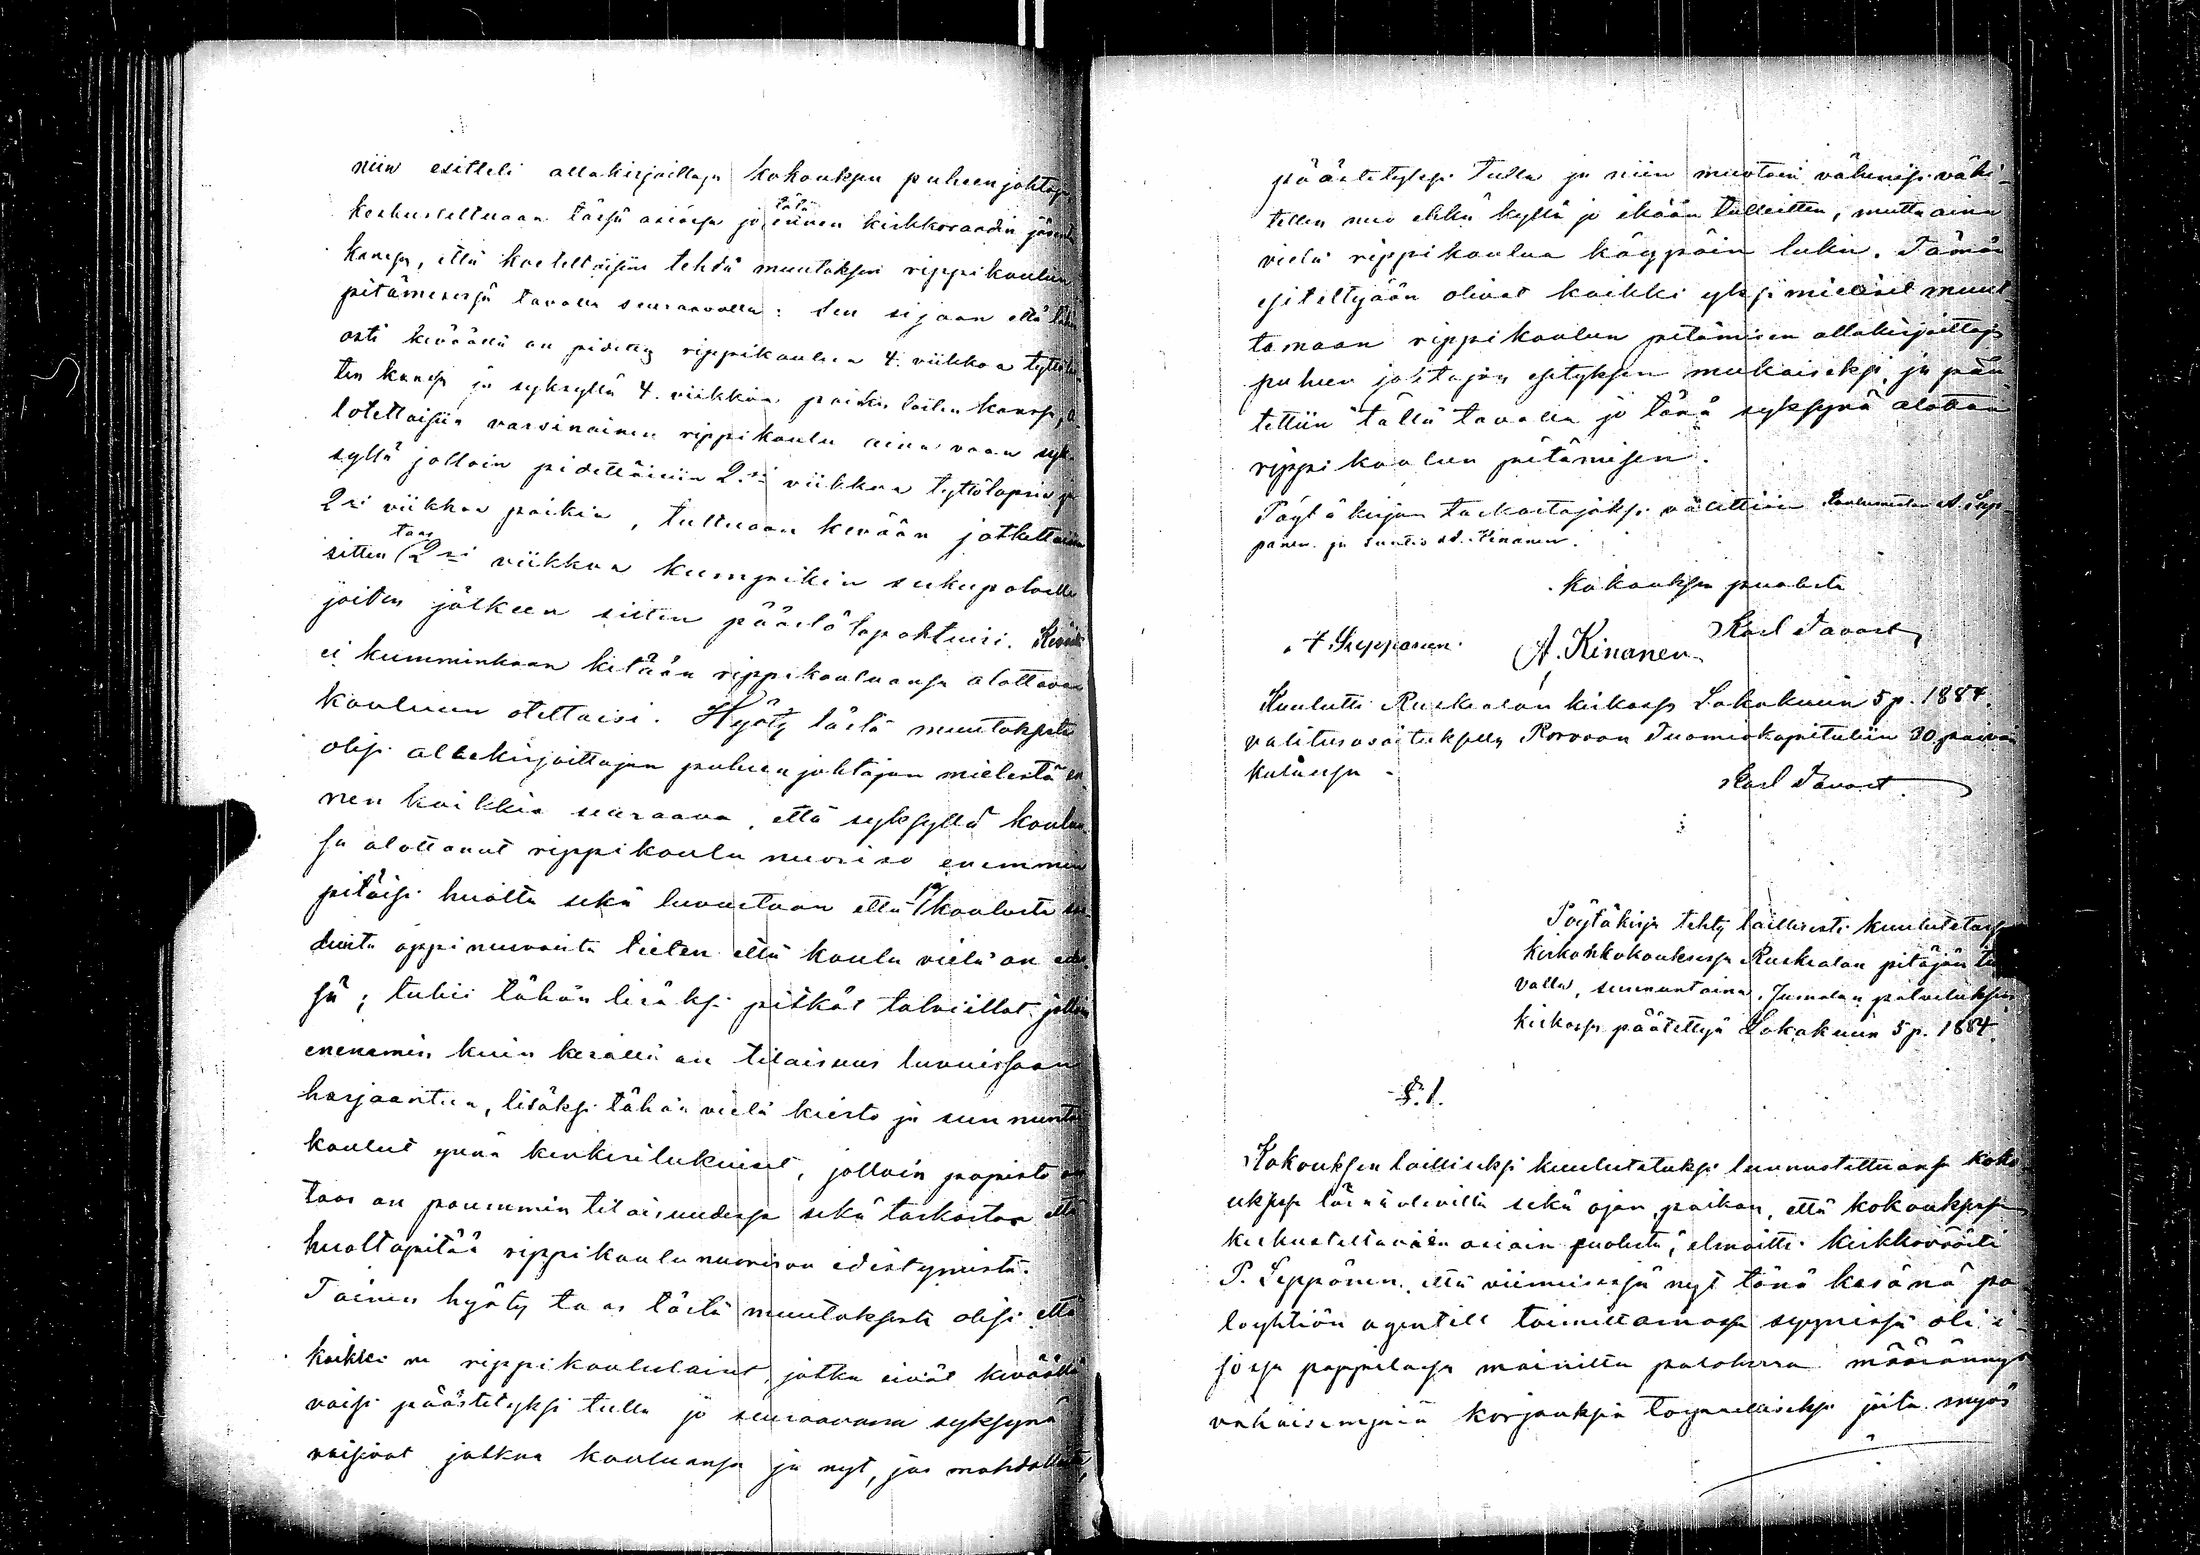 niin esitteli allakirjoittaja kokouksen puheenjohtaja
keskusteltuaan tässä asiassa jo tätä ennen kirkkoraadin jäsenten
kanssa, että koeteltaisiin tehdä muutoksen rippikoulun
pitämisessä tavalla seuraavalla: sen sijaan että
asti keväällä on pidetty rippikoulua 4. viikkoa tyttö
ten kanssa ja syksyllä 4. viikkoa poika lasten kanssa, a
lotettaisiin varsinainen rippikoulu aina vaan syk
syllä jolloin pidettäisiin 2:si viikkoa tyttölapsia ja
2:si viikkoa poikia, tultuaan kevään jatkettaisiin
sitten taas 2:si viikkoa kumpaikin sukupuolella
joiden jälkeen sitten päästö tapahtuisi. Keväällä
ei kumminkaan ketään rippikouluansa alottavaa
kouluun otettaisi. Hyöty tästä muutoksesta
olisi allekirjoittajan puheenjohtajan mielestä en
nen kaikkia seuraava, että syksyllä koulun
sa alottanut rippikoulu nuoriso enemmän
pitäisi huolta sekä luvustaan että koulusta saa
duista oppineuvoista tieten että koulu vielä on edes
sä; tulisi tähän lisäksi pitkät talvi illat jolloin
enemmin kuin kesällä on tilaisuus luvuissaan
harjaantua, lisäksi tähän vielä kierto ja sunnuntai
koulut ynnä kinkerilukuiset, jolloin papisto on
taas on paremmin tilaisuudessa sekä tarkastaa että
huoltapitää rippikoulu nuorison edistymistä.
Toinen hyöty taas tästä muutoksesta olisi että
kaikki ne rippikoululaiset, jotka eivät keväällä
voisi päästetyksi tulla jo seuraavana syksynä
voisivat jatkaa kouluansa ja nyt, jos mahdollista,
päästetyksi tulla ja niin muotoin vähenisi vähi-
tellen nuo ehkä kyllä jo ikään tulleitten, mutta aina
vielä rippikoulua käypäin luku. Tämän
esiteltyään olivat kaikki yksimieliset muut-
tamaan rippikoulun pitämisen allakirjoittaja
puheen johtajan esityksen mukaiseksi, ja pää
tettiin tällä tavalla jo tänä syksynä alottaa
rippikoulun pitämisen.
Pöytäkirjan tarkastajaksi valittiin Koulumestari A. Sep-
panen ja Suntio Ad. Kinanen.
Kokouksen puolesta
Karl Tavast
A Seppanen A. Kinanen
Kuulutti Ruskealan kirkossa Lokakuun 5 p. 1884.
valitusosoituksella Porvoon Tuomiokapituliin 30 päivän
kuluessa -
Karl Tavast.
Pöytäkirja tehty laillisesti kuulutetussa
kirkonkokouksessa Ruskealan pitäjän
valla, sunnuntaina, Jumalan palveluksen
kirkossa päätettyä Lokakuun 5 p. 1884.
§. 1.
Kokouksen lailliseksi kuulutetuksi tunnustettuansa koko-
uksessa läsnäolevilta sekä ajan, paikan, että kokouksessa
keskusteltavain asiain puolesta, ilmoitti kirkkovääti
P. Seppänen, että viimeisessä nyt tänä kesänä pa
loyhtiön agentilt toimittamassa syynissä oli i-
sossa pappilassa mainittu palokunn määrännyt
vähäisempiä korjauksia tarpeelliseksi joita myös